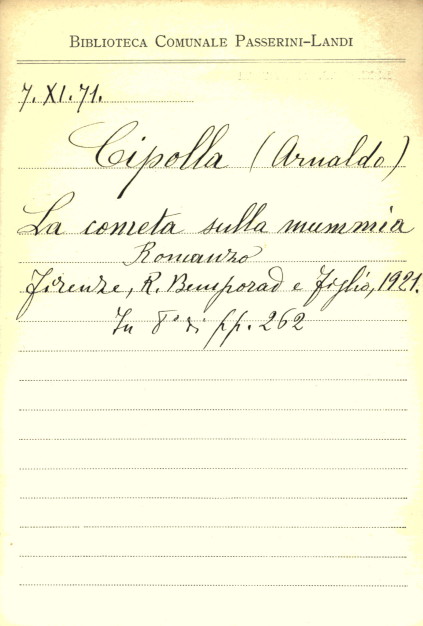 BIBLIOTECA COMUNALE PASSERINI-LANDI
7. XI. 71.
Cipolla (Arnaldo)
La cometa sulla mummia
Romanzo
Firenze, R. Bemporad e figlio, 1921.
In 8° di pp. 262